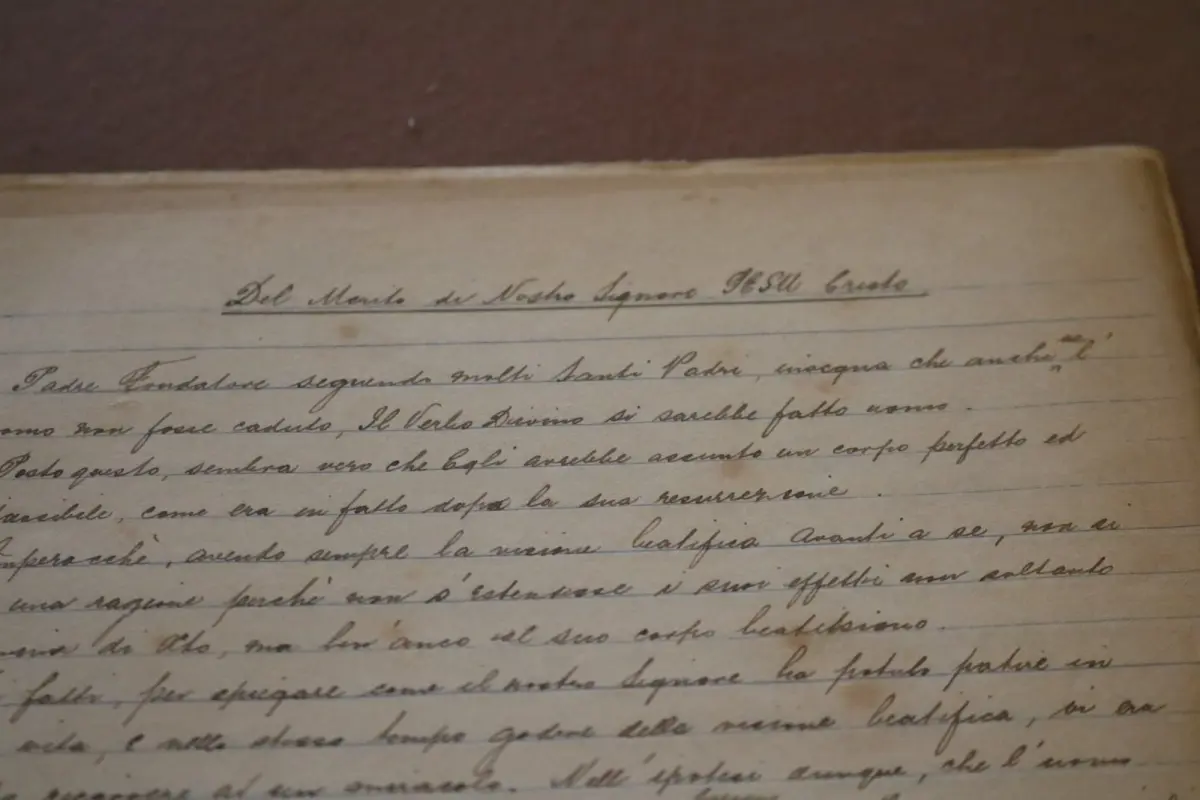 Del Merito di Nostro Signore IESU Cristo
Padre Fondatore seguendo molti Santi Padri, insegna che anche se l'
omo non fosse caduto, Il Verbo Divino si sarebbe fatto uomo.
Posto questo, sembra vero che Egli avrebbe assunto un corpo perfetto ed
passibile, come era in fatto dopo la sua resurrezione.
mperocchè, avendo sempre la visione beatifica avanti a se, non si
una ragione perchè non s'estendesse i suoi effetti non soltanto
di Xto, ma ben'anco al suo corpo beatissimo.
fatti, per spiegare come il nostro Signore ha potuto patire in
vita, e nello stesso tempo godere della visione beatifica, vi era
ricorrere ad un miracolo. Nell'ipotesi dunque, che l'uomo